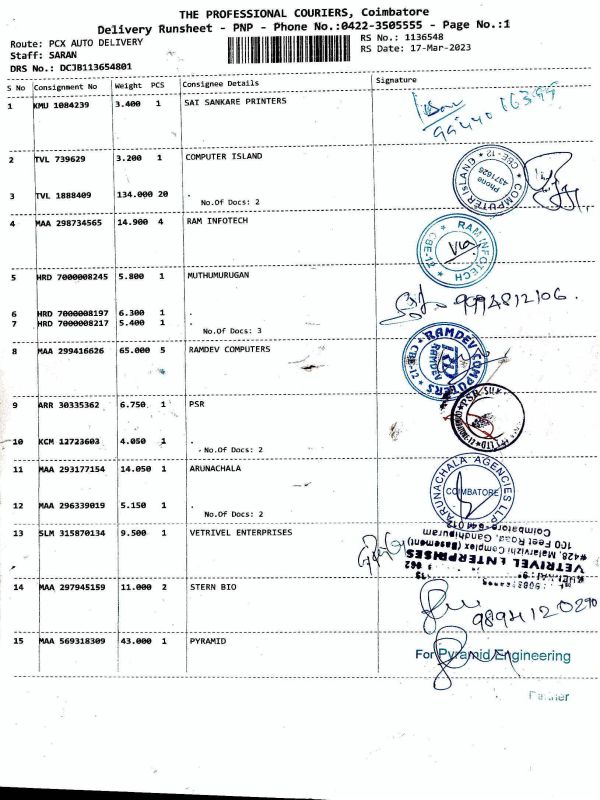 THE PROFESSIONAL COURIERS, Coimbatore
Delivery Runsheet - PNP - Phone No.:0422-3505555 - Page No.:1
Route: PCX AUTO DELIVERY
RS No.: 1136548
Staff: SARAN
RS Date: 17-Mar-2023
DRS No.: DCJB113654801
S No Consignment No Weight PCS Consignee Details Signature
1 KMU 1084239 3.400 1 SAI SANKARE PRINTERS
2 TVL 739629 3.200 1 COMPUTER ISLAND
COMPUTER ISLAND * CBE-12 *
Phone
4371626
3 TVL 1888409 134.000 20 .
No.Of Docs: 2
4 MAA 298734565 14.900 4 RAM INFOTECH
RAM INFOTECH * CBE-12 *
5 HRD 7000008245 5.800 1 MUTHUMURUGAN
9994812106.
6 HRD 7000008197 6.300 1 .
7 HRD 7000008217 5.400 1 .
No.Of Docs: 3
8 MAA 299416626 65.000 5 RAMDEV COMPUTERS
RAMDEV COMPUTERS * CBE-12 *
RAMDEV
9 ARR 30335362 6.750 1 PSR
10 KCM 12723603 4.050 1 .
No.Of Docs: 2
11 MAA 293177154 14.050 1 ARUNACHALA
ARUNACHALA AGENCIES LLP
COIMBATORE
12 MAA 296339019 5.150 1 .
No.Of Docs: 2
13 SLM 315870134 9.500 1 VETRIVEL ENTERPRISES
VETRIVEL ENTERPRISES
#428, Malarvizhi Complex (Basement)
100 Feet Road, Gandhipuram
Coimbatore-641 012
14 MAA 297945159 11.000 2 STERN BIO
9894120290
15 MAA 569318309 43.000 1 PYRAMID
For Pyramid Engineering
Partner